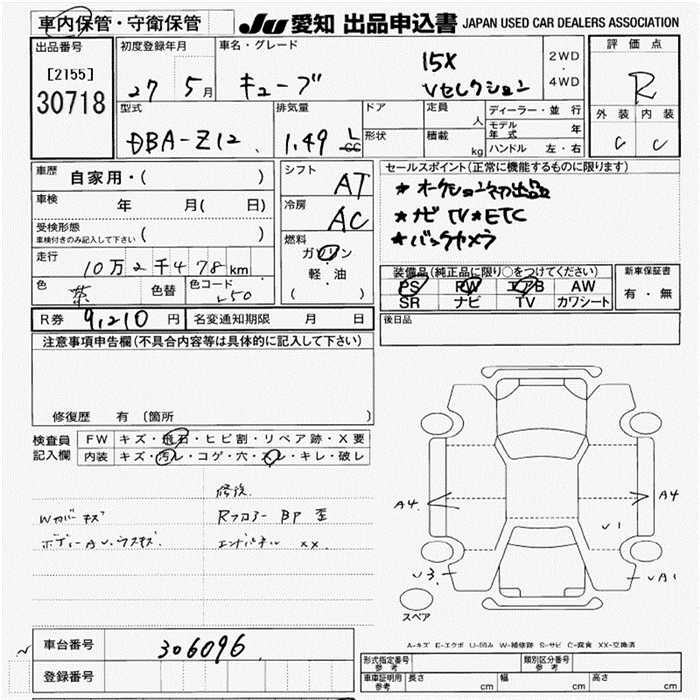 車内保管・守衛保管
JU 愛知 出品申込書 JAPAN USED CAR DEALERS ASSOCIATION
出品番号 初度登録年月 車名・グレード 評価点
[2155] 15X 2WD
30718 27 5月 キューブ Vセレクション ・ 4WD R
型式 排気量 ドア 定員 人 ディーラー・並行 外装 内装
DBA-Z12 1.49 L CC 形状 積載 kg モデル年式 年 C C
ハンドル 左・右
車歴 自家用・( ) シフト AT セールスポイント(正常に機能するものに限ります)
車検 年 月( 日) 冷房 AC ★オークション初出品
受検形態 車検付きのみ記入して下さい ( ) ★ナビ TV★ETC
燃料 ガソリン ★バックカメラ
走行 10万2千478km 軽・油
( )
色 茶 色替 色コード L50
装備品(純正品に限り○をつけてください) 新車保証書
PS PW エアB AW 有・無
SR ナビ TV カワシート
R券 9,210円 名変通知期限 月 日 後日品
注意事項申告欄(不具合内容等は具体的に記入して下さい)
修復歴 有〔箇所 〕
検査員記入欄 FW キズ・飛石・ヒビ割・リペア跡・X要
内装 キズ・汚レ・コゲ・穴・スレ・キレ・破レ
修復
Wカバーキズ Rフロアー BP 歪
ボディーAU・ウスキズ エンドパネル XX
A4 A4
U1
U3 UA1
スペア
A-キズ E-エクボ U-凹み W-補修跡 S-サビ C-腐食 XX-交換済
車台番号 306096
登録番号
形式指定番号 参考 類別区分番号 参考
車庫証明用 参考 長さ cm 幅 cm 高さ cm